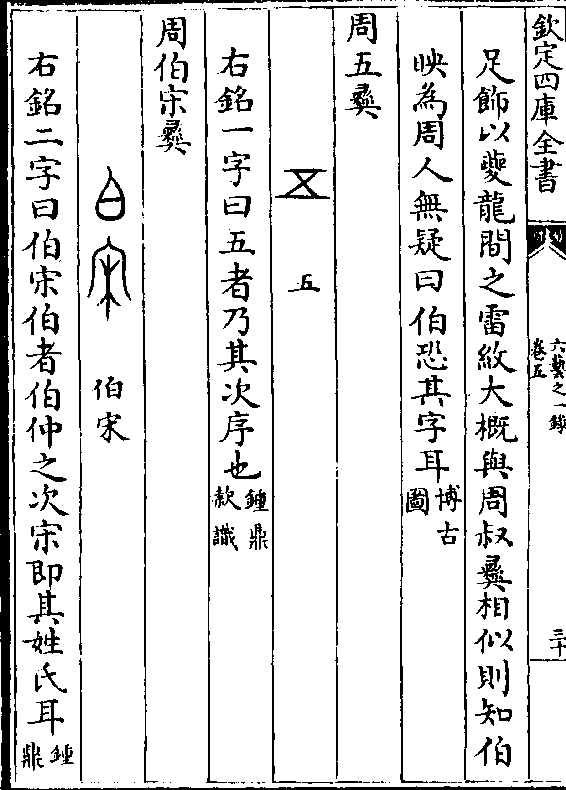 欽定四庫全書
六藝之一錄
卷五
三十
足飾以夔龍間之雷紋大概與周叔彞相似則知伯
映為周人無疑曰伯恐其字耳博古
圖
周五彞
五
右銘一字曰五者乃其次序也鍾鼎
款識
周伯宋彞
伯宋
右銘二字曰伯宋伯者伯仲之次宋即其姓氏耳鍾
鼎